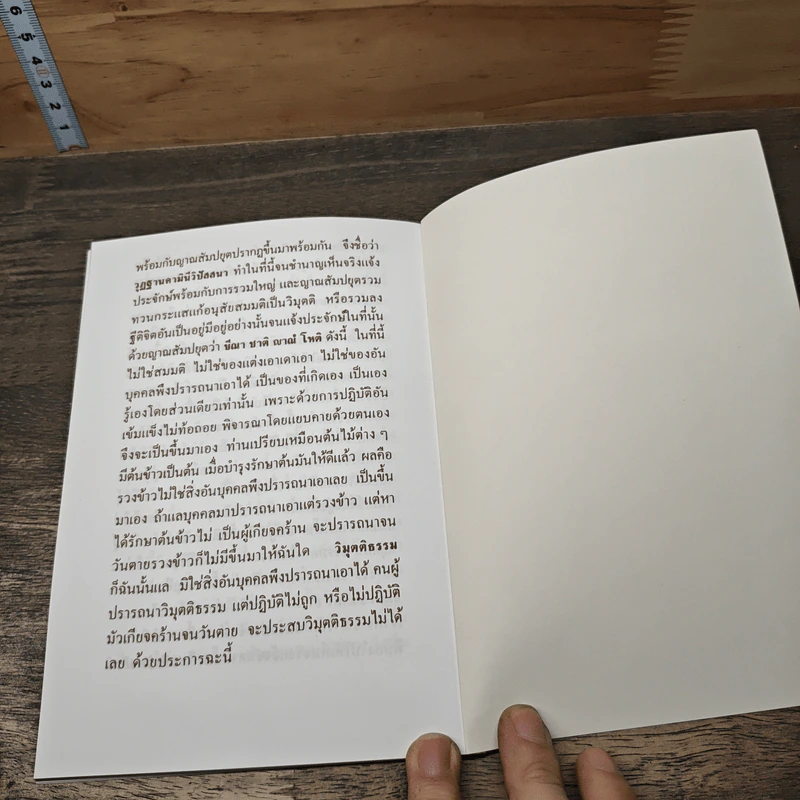 6
5
4
3
2
1
พร้อมกับญาณสัมปยุตปรากฏขึ้นมาพร้อมกัน จึงชื่อว่า
วุฏฐานคามินีวิปัสสนา ทำในที่นี้จนชำนาญเห็นจริงแจ้ง
ประจักษ์พร้อมกับการรวมใหญ่ และญาณสัมปยุตรวม
ทวนกระแสแก้อนุสัยสมมติเป็นวิมุตติ หรือรวมลง
ฐีติจิตอันเป็นอยู่มีอยู่อย่างนั้นจนแจ้งประจักษ์ในที่นั้น
ด้วยญาณสัมปยุตว่า ขีณา ชาติ ญาณํ โหติ ดังนี้ ในที่นี้
ไม่ใช่สมมติ ไม่ใช่ของแต่งเอาเดาเอา ไม่ใช่ของอัน
บุคคลพึงปรารถนาเอาได้ เป็นของที่เกิดเอง เป็นเอง
รู้เองโดยส่วนเดียวเท่านั้น เพราะด้วยการปฏิบัติอัน
เข้มแข็งไม่ท้อถอย พิจารณาโดยแยบคายด้วยตนเอง
จึงจะเป็นขึ้นมาเอง ท่านเปรียบเหมือนต้นไม้ต่าง ๆ
มีต้นข้าวเป็นต้น เมื่อบำรุงรักษาต้นมันให้ดีแล้ว ผลคือ
รวงข้าวไม่ใช่สิ่งอันบุคคลพึงปรารถนาเอาเลย เป็นขึ้น
มาเอง ถ้าแลบุคคลมาปรารถนาเอาแต่รวงข้าว แต่หา
ได้รักษาต้นข้าวไม่ เป็นผู้เกียจคร้าน จะปรารถนาจน
วันตายรวงข้าวก็ไม่มีขึ้นมาให้ฉันใด วิมุตติธรรม
ก็ฉันนั้นแล มิใช่สิ่งอันบุคคลพึงปรารถนาเอาได้ คนผู้
ปรารถนาวิมุตติธรรม แต่ปฏิบัติไม่ถูก หรือไม่ปฏิบัติ
มัวเกียจคร้านจนวันตาย จะประสบวิมุตติธรรมไม่ได้
เลย ด้วยประการฉะนี้